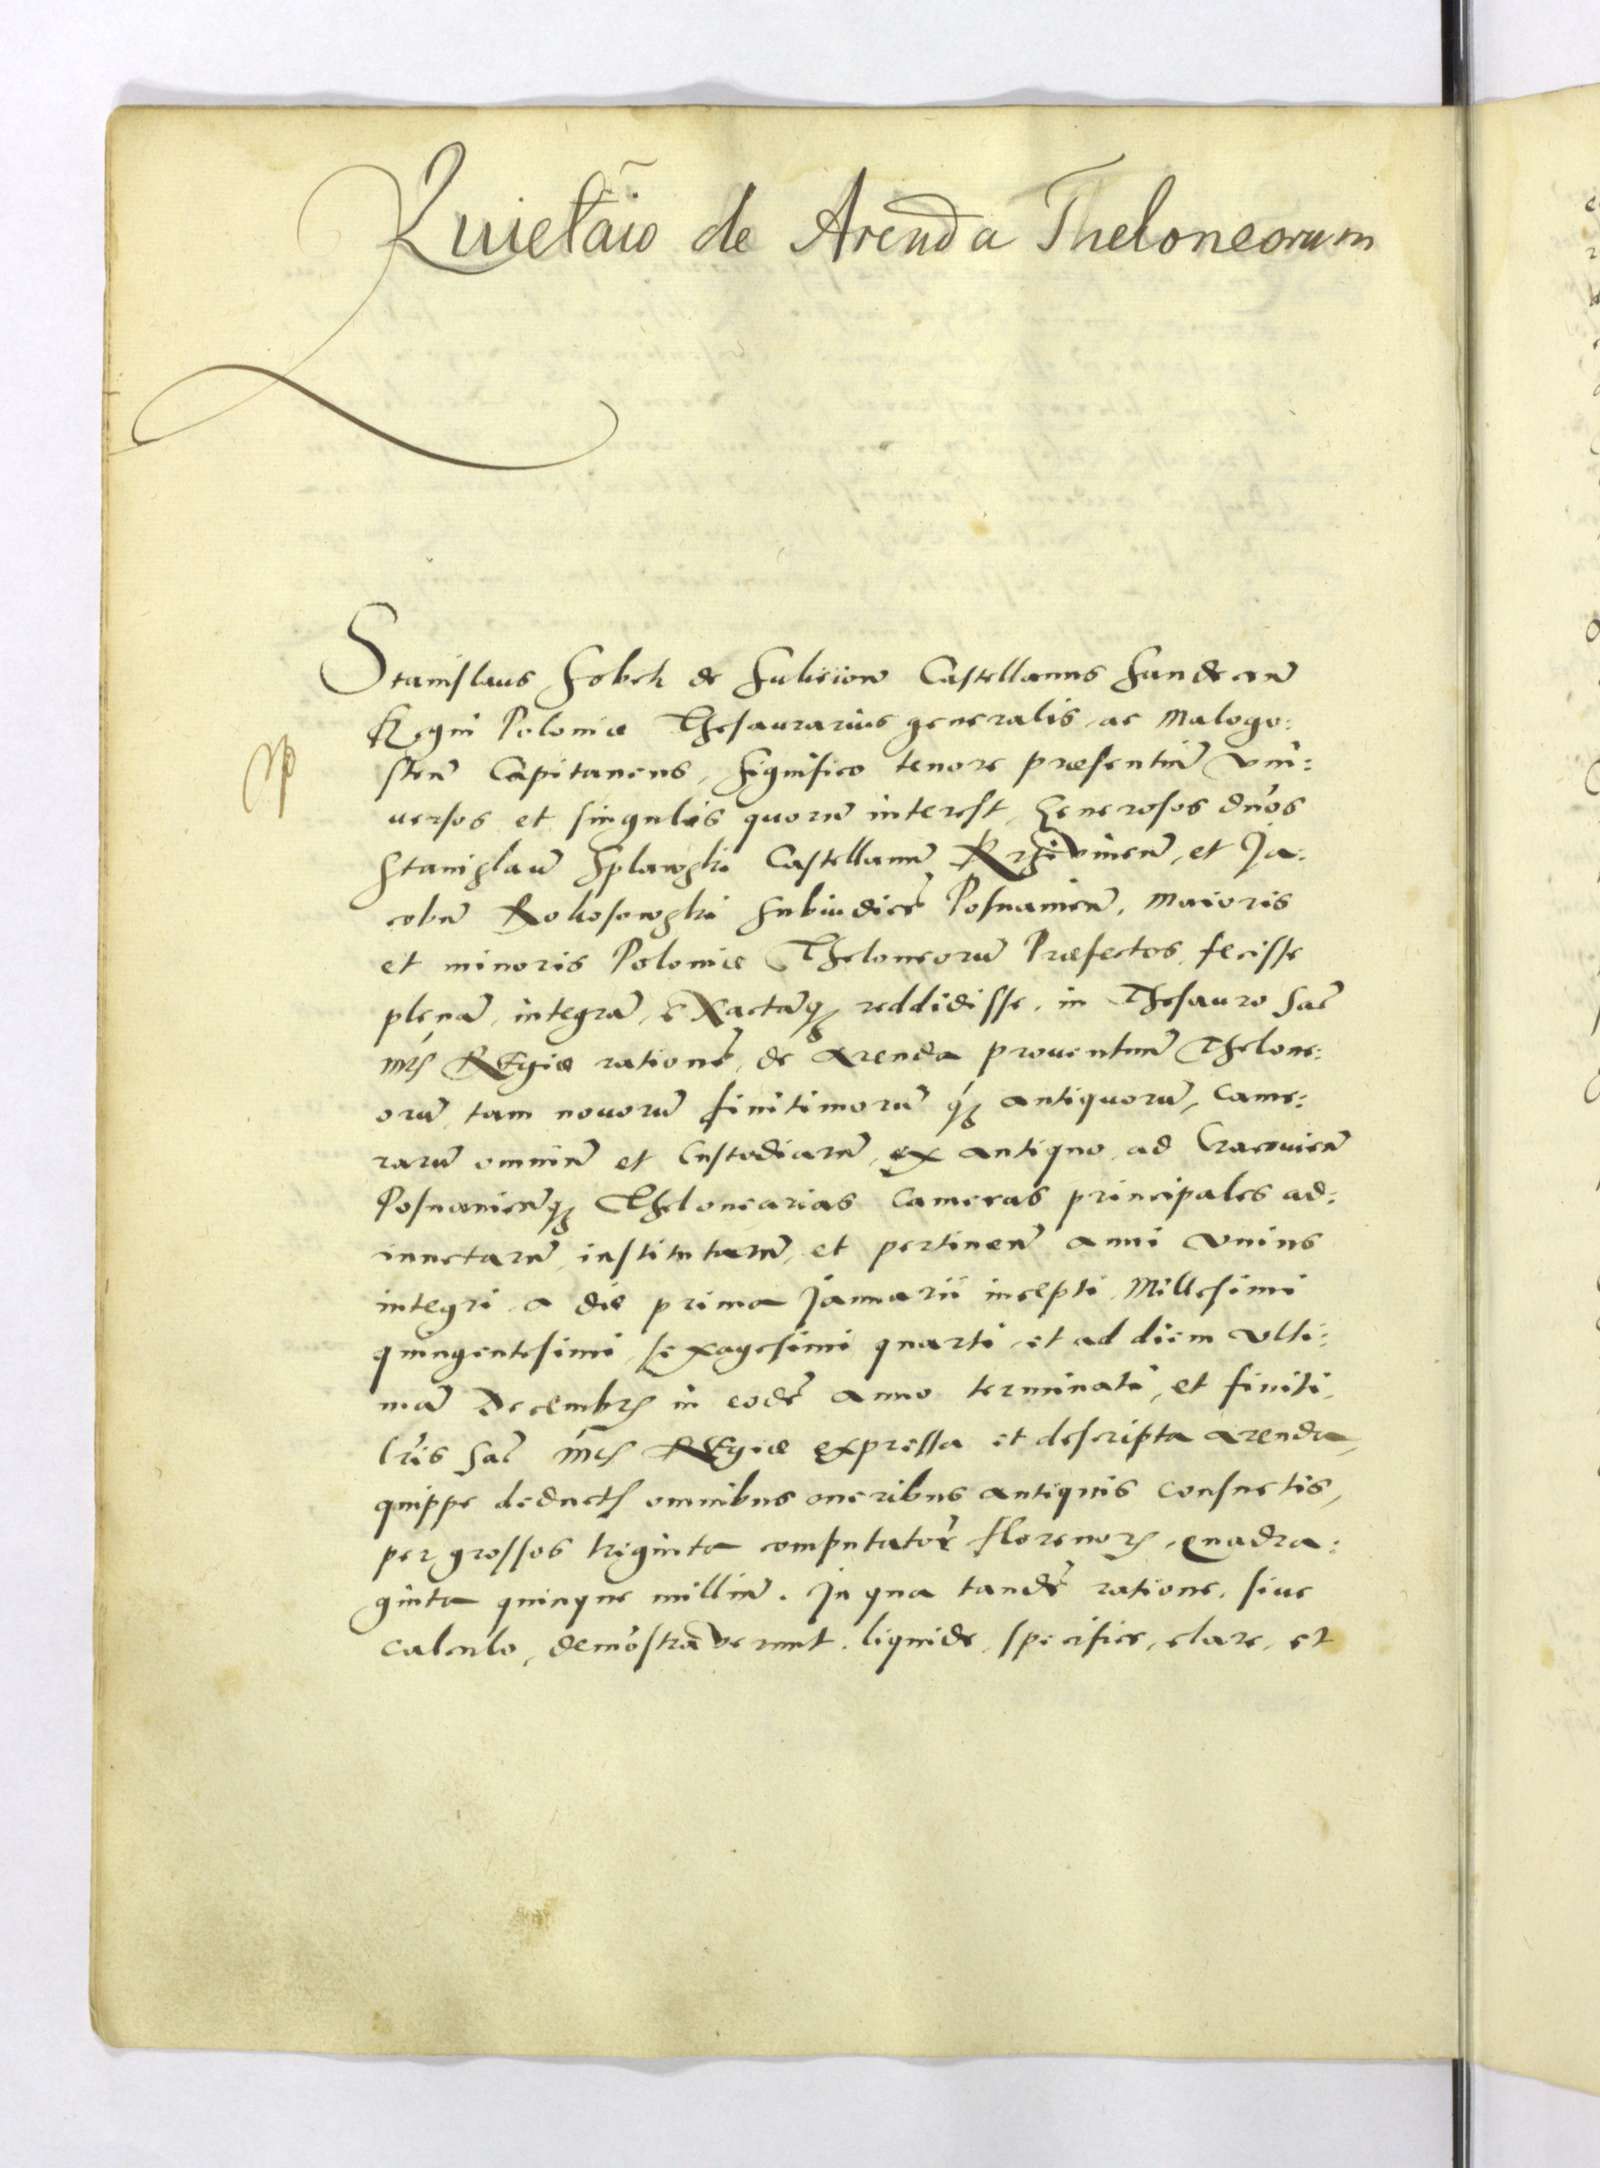 Quietãio de Arenda Theloneorum
Stanislaus Sobek de Suliejow Castellanus Sandecen̄
Regni Poloniæ Thesaurarius generalis, ac Malogo:
sten̄ Capitaneus, Significo tenore præsentiū Vni:
uersos et singulos quorū interest, Generosos dn̄os
Stanislaū Splawski Castellanū Krzivinen̄, et Ja:
cobū Rokosowski Subiudicē Posnanien̄, Maioris
et minoris Poloniæ Theloneorū Præfectos, fecisse
plenā, integrā, Exactāq₃ reddidisse, in Thesauro Sac̄
Mtis REgiæ rationē, de Arenda prouentuū Thelone:
orū, tam nouorū finitimorū q₃ antiquorū, Came:
rarū omniū et Custodiarū, ex antiquo, ad Cracouien̄
Posnanien̄q₃ Thelonearias Cameras principales ad:
iunctarū, institutarū, et pertinen̄ anni Vnius
integri a die prima Januarii incepti, Millesimi
quingentesimi, Sexagesimi quarti, et ad diem Vlti:
mā Decembris in eodē anno terminati, et finiti,
lr̄is Sac̄ Mtis REgiæ expressa et descripta Arenda,
quippe deductis omnibus oneribus antiquis consuetis,
per grossos triginta computator̄ florenor̄, Quadra:
ginta quinque milliū. In qua tandē ratione, siue
calculo, demōstraVerunt, liquide, specifice, clare, et